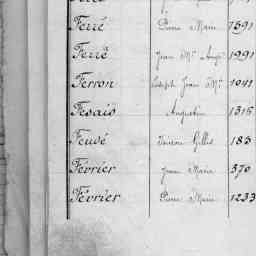 Ferré Pierre Marie 1591
Ferré Jean Mie Augte 1991
Ferron Joseph Jean Mie 1041
Fesais Augustin 1315
Feuvé Gilles 185
Février Jean Marie 370
Février Pierre Marie 1233